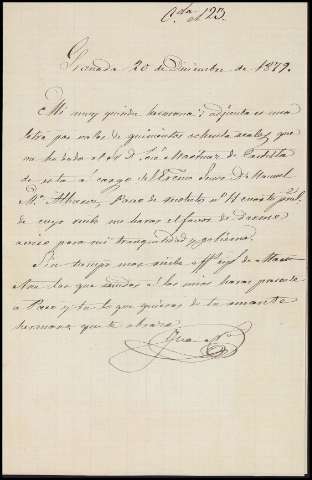 C.da el 23.
Granada 20 de Diciembre de 1879.
Mi muy querida hermana: adjunta es una
letra por valor de quinientos ochenta reales que
me ha dado el Sr. D. José Martinez de Castilla
de esta á cargo del Excmo Señor D. Manuel
Mª Alvarez, Paseo de nº 11 cuarto pral.
de cuyo recibo me haras el favor de darme
aviso para mi tranquilidad y gobierno.
Sin tiempo mas recibe de
Ana los que saludas á los mios haras presente
á Paco y tu lo que quieras de tu amante
hermana que te abraza